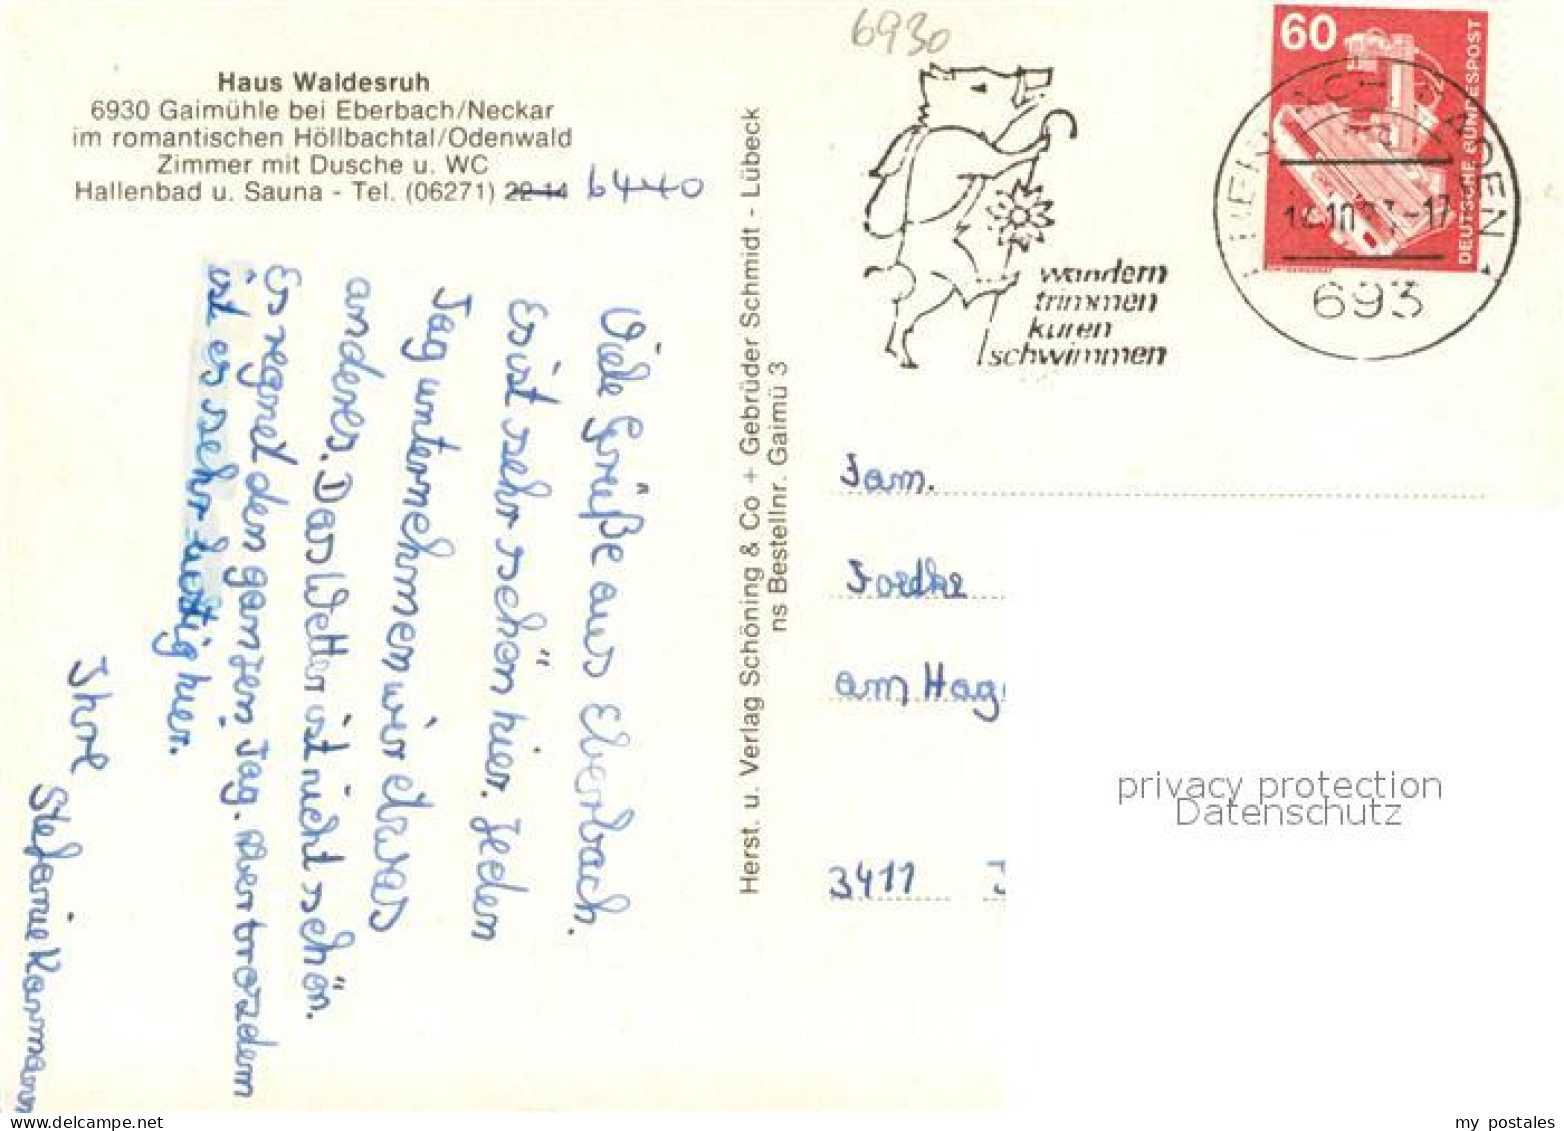 6930
Haus Waldesruh
6930 Gaimühle bei Eberbach/Neckar
im romantischen Höllbachtal/Odenwald
Zimmer mit Dusche u. WC
Hallenbad u. Sauna - Tel. (06271) 22 14 6440
Viele Grüße aus Eberbach.
Es ist sehr schön hier. Jeden
Tag unternehmen wir etwas
anderes. Das Wetter ist nicht schön.
Es regnet den ganzen Tag. Aber trozdem
ist es sehr lustig hier.
Ihre
Stefanie Karmann
Herst. u. Verlag Schöning & Co + Gebrüder Schmidt - Lübeck
ns Bestellnr. Gaimü 3
wandern
trimmen
kuren
schwimmen
60
DEUTSCHE BUNDESPOST
693
Fam.
am Hag
3411
privacy protection
Datenschutz
www.delcampe.net
my postales